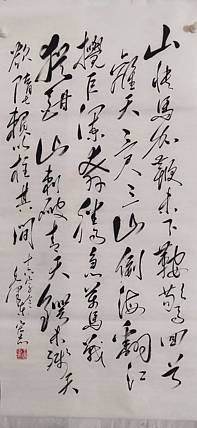 山快馬加鞭未下鞍驚回首
離天三尺三山倒海翻江
攪巨瀾奔騰急萬馬戰
猶酣山刺破青天鍔未殘天
欲墮賴以柱其間十六字令
毛澤東